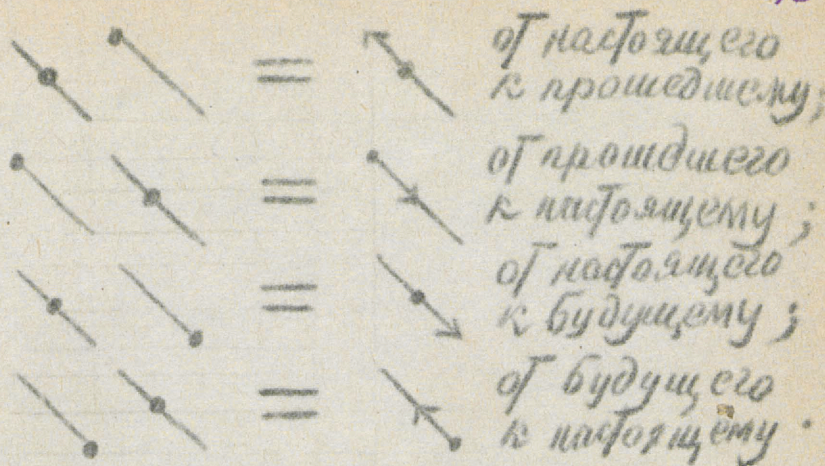 = от настоящего
к прошедшему;
= от прошдшего
к настоящему;
= от настоящего
к будущему;
= от будущего
к настоящему.